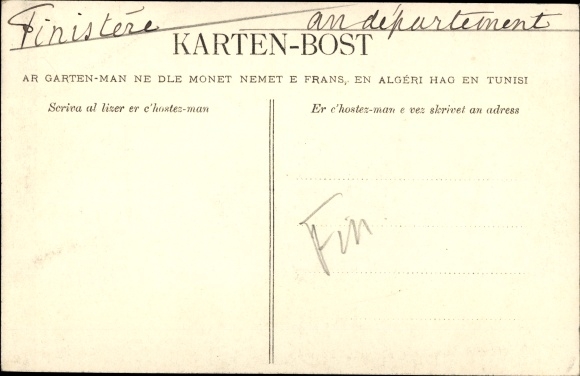 Finistére an département
KARTEN-BOST
AR GARTEN-MAN NE DLE MONET NEMET E FRANS, EN ALGÉRI HAG EN TUNISI
Scriva al lizer er c'hostez-man
Er c'hostez-man e vez skrivet an adress
Fin